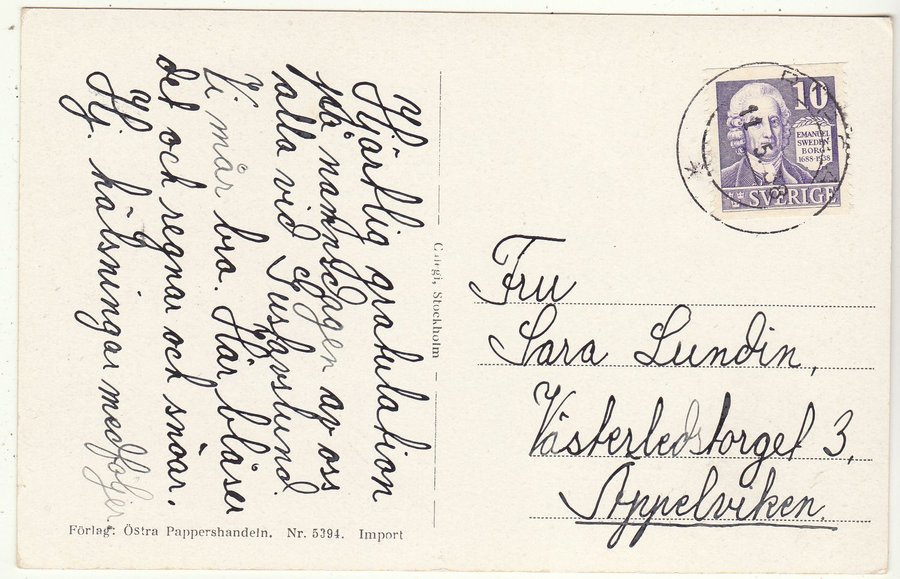 Hjärtlig gratulation
på namnsdagen av oss
alla vid Gustavslund.
Vi mår bra. Här blåser
det och regnar och snöar.
Hj. hälsningar medföljer.
Förlag: Östra Pappershandeln. Nr. 5394. Import
Stockholm
10
EMANUEL
SWEDEN
BORG
1688-1938
SVERIGE
11 5
Fru
Sara Lundin,
Västerledstorget 3,
Äppelviken.